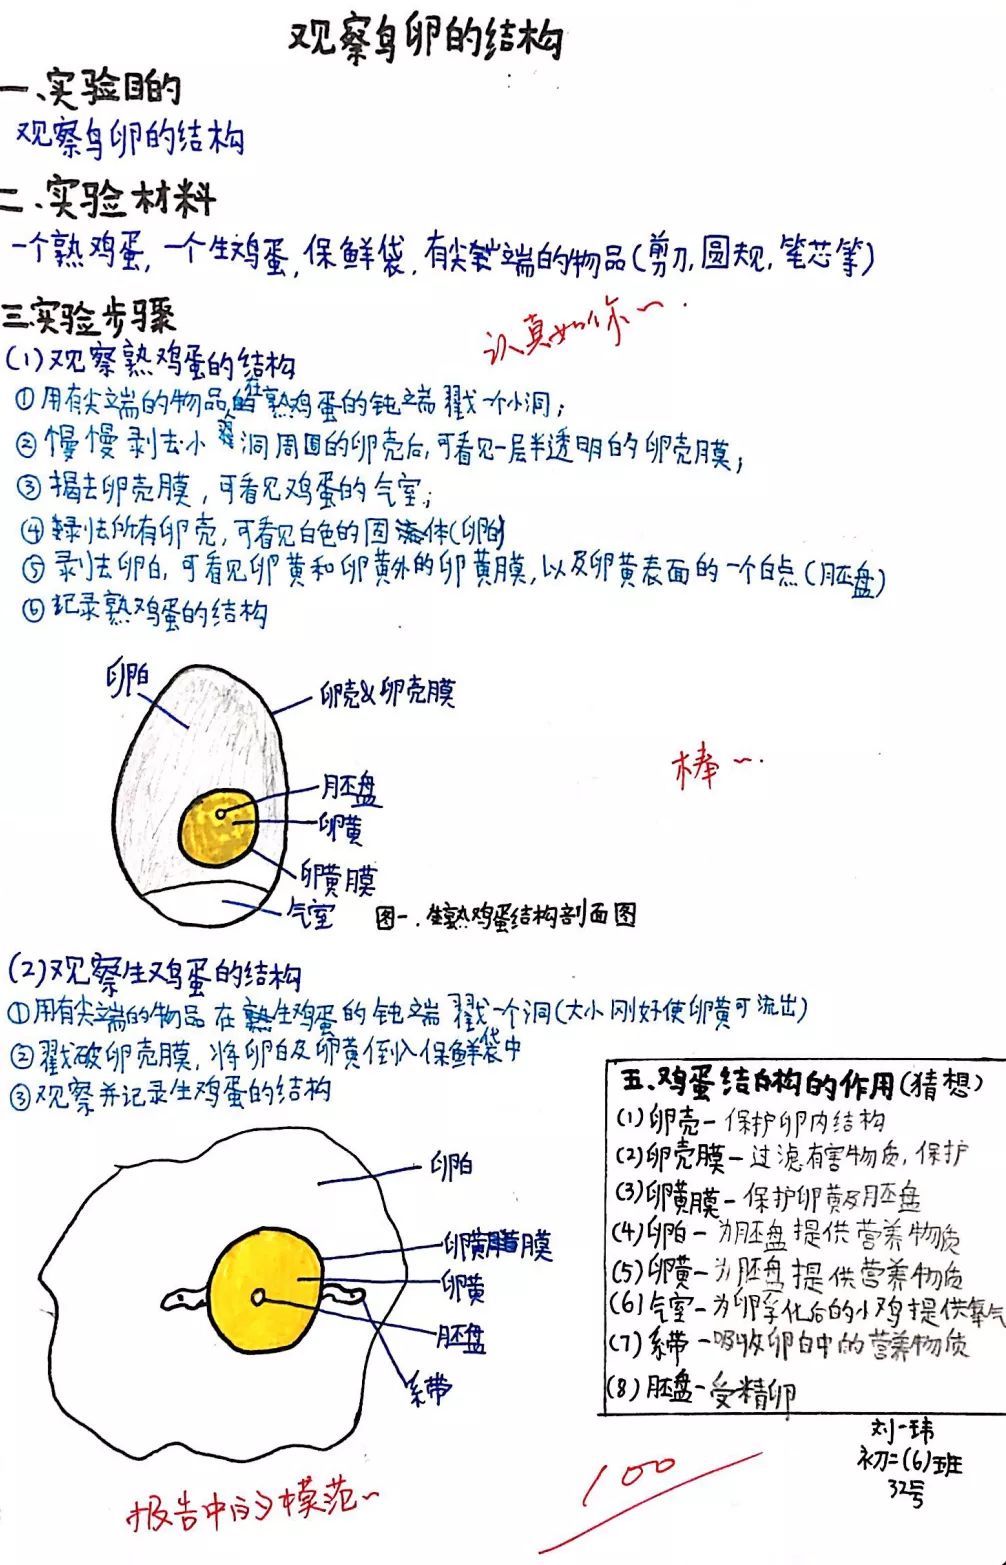 观察鸟卵的结构
一、实验目的
观察鸟卵的结构
二、实验材料
一个熟鸡蛋，一个生鸡蛋，保鲜袋，有尖端的物品(剪刀，圆规，笔芯等)
三.实验步骤
认真如你~.
(1)观察熟鸡蛋的结构
①用有尖端的物品在熟鸡蛋的钝端戳一个小洞；
②慢慢剥去小洞周围的卵壳后，可看见一层半透明的卵壳膜；
③揭去卵壳膜，可看见鸡蛋的气室；
④剥去所有卵壳，可看见白色的固体(卵白)
⑤剥去卵白，可看见卵黄和卵黄外的卵黄膜，以及卵黄表面的一个白点(胚盘)
⑥记录熟鸡蛋的结构
卵白
卵壳&卵壳膜
胚盘
卵黄
卵黄膜
气室
棒~.
图一.熟鸡蛋结构剖面图
(2)观察生鸡蛋的结构
①用有尖端的物品在生鸡蛋的钝端戳一个洞(大小刚好使卵黄可流出)
②戳破卵壳膜，将卵白及卵黄倒入保鲜袋中
③观察并记录生鸡蛋的结构
卵白
卵黄膜
卵黄
胚盘
系带
五、鸡蛋结构的作用(猜想)
(1)卵壳-保护卵内结构
(2)卵壳膜-过滤有害物质，保护
(3)卵黄膜-保护卵黄及胚盘
(4)卵白-为胚盘提供营养物质
(5)卵黄-为胚盘提供营养物质
(6)气室-为卵孵化后的小鸡提供氧气
(7)系带-吸收卵白中的营养物质
(8)胚盘-受精卵
刘一玮
初二(6)班
32号
报告中的模范~
100